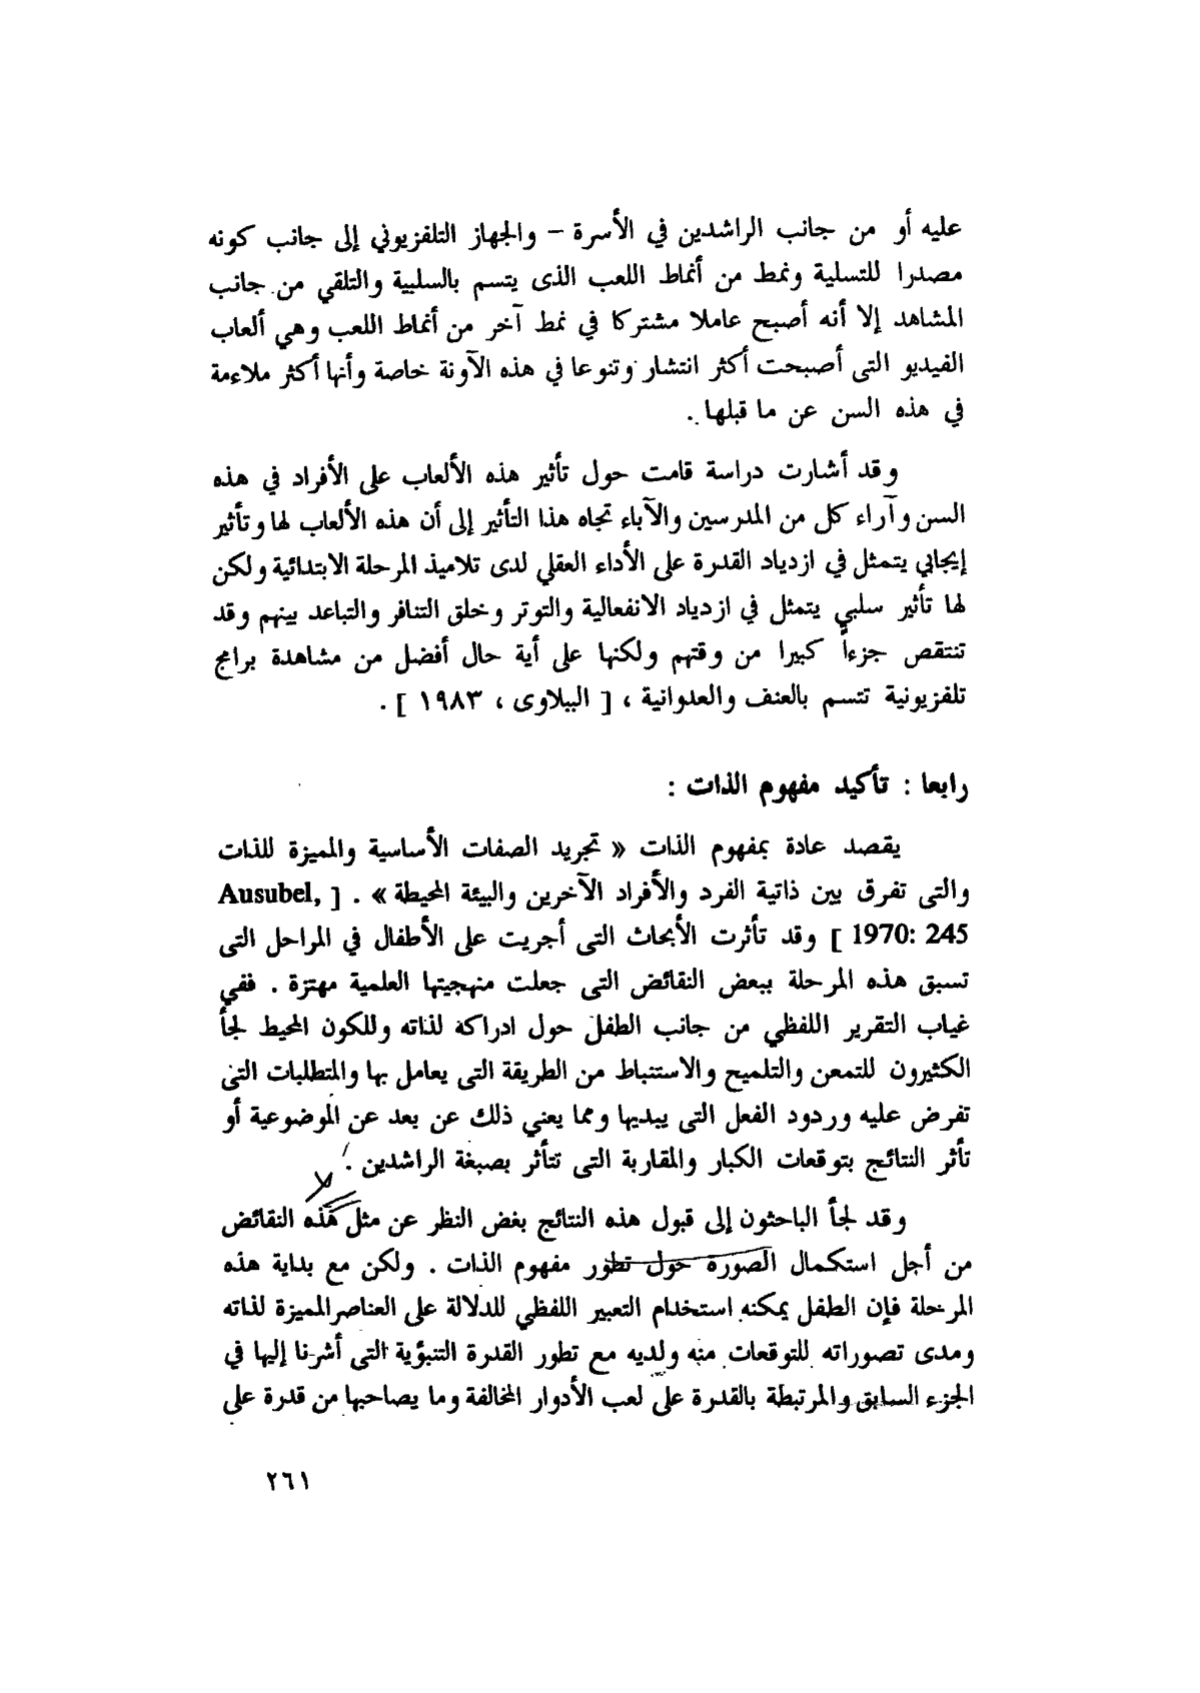 عليه أو من جانب الراشدين في الأسرة – والجهاز التلفزيوني إلى جانب كونه
مصدرا للتسلية ونمط من أنماط اللعب الذى يتسم بالسلبية والتلقي من جانب
المشاهد إلا أنه أصبح عاملا مشتركا في نمط آخر من أنماط اللعب وهي ألعاب
الفيديو التى أصبحت أكثر انتشار وتنوعا في هذه الآونة خاصة وأنها أكثر ملاءمة
في هذه السن عن ما قبلها .
وقد أشارت دراسة قامت حول تأثير هذه الألعاب على الأفراد في هذه
السن وآراء كل من المدرسين والآباء تجاه هذا التأثير إلى أن هذه الألعاب لها وتأثير
إيجابي يتمثل في ازدياد القدرة على الأداء العقلي لدى تلاميذ المرحلة الابتدائية ولكن
لها تأثير سلبي يتمثل في ازدياد الانفعالية والتوتر وخلق التنافر والتباعد بينهم وقد
تنتقص جزءاً كبيرا من وقتهم ولكنها على أية حال أفضل من مشاهدة برامج
تلفزيونية تتسم بالعنف والعدوانية ، [ الببلاوى ، ١٩٨٣ ] .
رابعا : تأكيد مفهوم الذات :
يقصد عادة بمفهوم الذات « تجريد الصفات الأساسية والمميزة للذات
والتى تفرق بين ذاتية الفرد والأفراد الآخرين والبيئة المحيطة » . [ Ausubel,
1970: 245 ] وقد تأثرت الأبحاث التى أجريت على الأطفال في المراحل التى
تسبق هذه المرحلة ببعض النقائض التى جعلت منهجيتها العلمية مهتزة . ففي
غياب التقرير اللفظي من جانب الطفل حول ادراكه لذاته وللكون المحيط لجأ
الكثيرون للتمعن والتلميح والاستنباط من الطريقة التى يعامل بها والمتطلبات التى
تفرض عليه وردود الفعل التى يبديها ومما يعني ذلك عن بعد عن الموضوعية أو
تأثر النتائج بتوقعات الكبار والمقاربة التى تتأثر بصبغة الراشدين .
وقد لجأ الباحثون إلى قبول هذه النتائج بغض النظر عن مثل هذه النقائض
من أجل استكمال الصورة حول تطور مفهوم الذات . ولكن مع بداية هذه
المرحلة فإن الطفل يمكنه استخدام التعبير اللفظي للدلالة على العناصر المميزة لذاته
ومدى تصوراته للتوقعات منه ولديه مع تطور القدرة التنبؤية التى أشرنا إليها في
الجزء السابق والمرتبطة بالقدرة على لعب الأدوار المخالفة وما يصاحبها من قدرة على
٢٦١